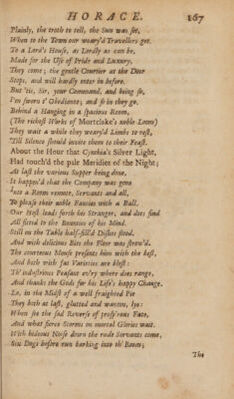 HORACE. 167
Plainly, the troth to tell, the Sun was set,
When to the Town our weary'd Travellers get.
To a Lord's House, as Lordly as can be,
Made for the Use of Pride and Luxury,
They come; the gentle Courtier at the Door
Stops, and will hardly enter in before.
But 'tis, Sir, your Command, and being so,
I'm sworn t' Obedience; and so in they go.
Behind a Hanging in a spacious Room,
(The richest Works of Mortclake's noble Loom)
They wait a while they weary'd Limbs to rest,
Till Silence should invite them to their Feast.
About the Hour that Cynthia's Silver Light,
Had touch'd the pale Meridies of the Night;
At last the various Supper being done,
It happen'd that the Company was gone
Into a Room remote, Servants and all,
To please their noble Fancies with a Ball.
Our Host leads forth his Stranger, and does find
All fitted to the Bounties of his Mind.
Still on the Table half-fill'd Dishes stood.
And with delicious Bits the Floor was strew'd.
The courteous Mouse presents him with the best,
And both with fat Varieties are blest:
Th' industrious Peasant ev'ry where does range,
And thanks the Gods for his Life's happy Change.
Lo, in the Midst of a well fraighted Pie
They both at last, glutted and wanton, lye:
When see the sad Reverse of prosp'rous Fate,
And what fierce Storms on mortal Glories wait.
With hideous Noise down the rude Servants come,
Six Dogs before run barking into th' Room;
The